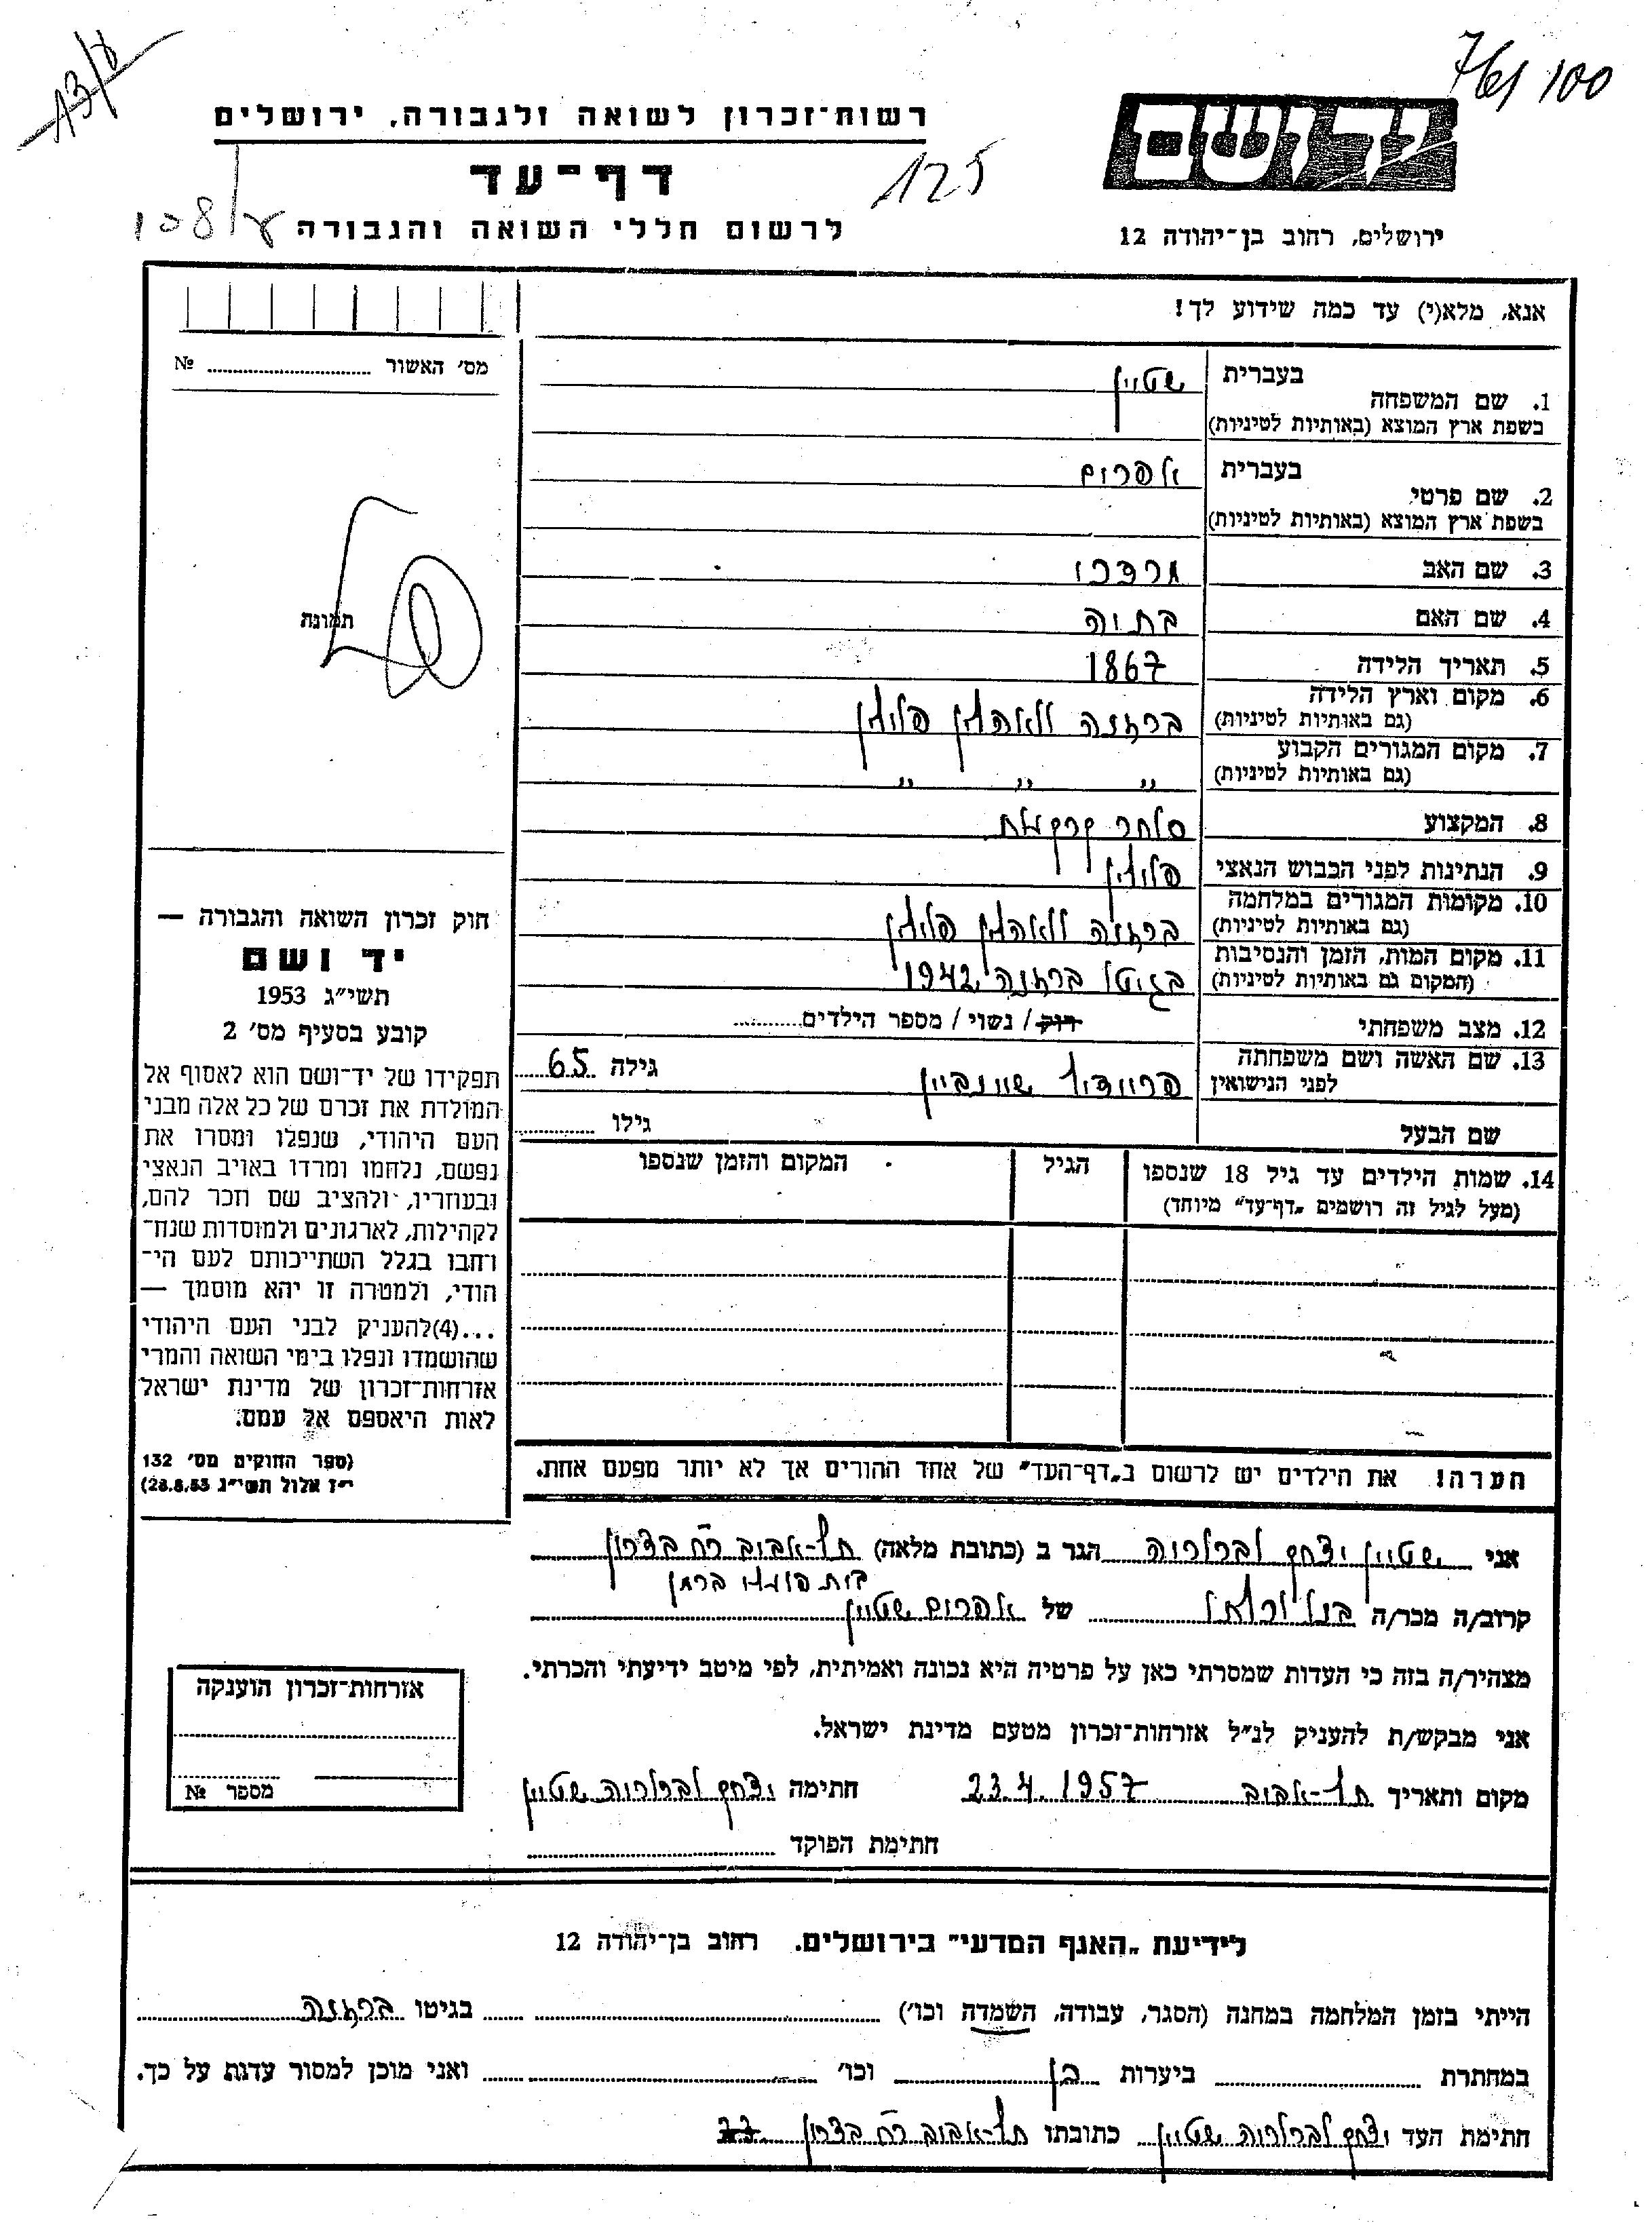 13/8
761 100
רשות־זכרון לשואה ולגבורה, ירושלים
דף־עד
125
לרשום חללי השואה והגבורה
ידושם
ירושלים, רחוב בן־יהודה 12
אנא, מלא(י) עד כמה שידוע לך!
מס׳ האשור № 
בעברית שטיין
1. שם המשפחה
בשפת ארץ המוצא (באותיות לטיניות)
בעברית אפרים
2. שם פרטי
בשפת ארץ המוצא (באותיות לטיניות)
3. שם האב מרדכי
4. שם האם בתיה
5. תאריך הלידה 1867
6. מקום וארץ הלידה
(גם באותיות לטיניות) ברזנה וואהלין פולין
7. מקום המגורים הקבוע
(גם באותיות לטיניות) " " "
8. המקצוע סוחר קרקעות
9. הנתינות לפני הכבוש הנאצי פולין
10. מקומות המגורים במלחמה
(גם באותיות לטיניות) ברזנה וואהלין פולין
11. מקום המות, הזמן והנסיבות
(המקום גם באותיות לטיניות) בגיטו ברזנה 1942
12. מצב משפחתי רוק / נשוי / מספר הילדים
13. שם האשה ושם משפחתה
לפני הנישואין שיינביין גילה 65
שם הבעל גילו
14. שמות הילדים עד גיל 18 שנספו הגיל המקום והזמן שנספו
(מעל לגיל זה רושמים „דף־עד" מיוחד)
תמונה
חוק זכרון השואה והגבורה —
יד ושם
תשי״ג 1953
קובע בסעיף מס׳ 2
תפקידו של יד־ושם הוא לאסוף אל
המולדת את זכרם של כל אלה מבני
העם היהודי, שנפלו ומסרו את
נפשם, נלחמו ומרדו באויב הנאצי
ובעוזריו, ולהציב שם וזכר להם,
לקהילות, לארגונים ולמוסדות שנח־
רבו בגלל השתייכותם לעם הי־
הודי, ולמטרה זו יהא מוסמך —
...(4)להעניק לבני העם היהודי
שהושמדו ונפלו בימי השואה והמרי
אזרחות־זכרון של מדינת ישראל
לאות היאספם אל עמם.
(ספר החוקים מס׳ 132
י״ז אלול תשי״ג 28.8.53)
הערה! את הילדים יש לרשום ב„דף־העד" של אחד ההורים אך לא יותר מפעם אחת.
אני שטיין יצחק לברליה הגר ב (כתובת מלאה) תל-אביב רח׳ בצרון
בית ברמן
קרוב/ה מכר/ה של אפרים שטיין
מצהיר/ה בזה כי העדות שמסרתי כאן על פרטיה היא נכונה ואמיתית, לפי מיטב ידיעתי והכרתי.
אני מבקש/ת להעניק לנ״ל אזרחות־זכרון מטעם מדינת ישראל.
מקום ותאריך תל-אביב 23.4.1957 חתימה יצחק לברליה שטיין
חתימת הפוקד
אזרחות־זכרון הוענקה
מספר №
לידיעת „האגף המדעי" בירושלים. רחוב בן־יהודה 12
הייתי בזמן המלחמה במחנה (הסגר, עבודה, השמדה וכו׳) בגיטו ברזנה
במחתרת ביערות כן וכו׳ ואני מוכן למסור עדות על כך.
חתימת העד יצחק לברליה שטיין כתובתו תל-אביב רח׳ בצרון 22